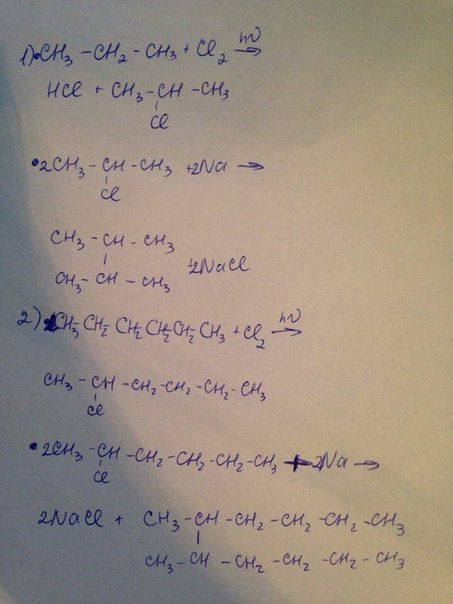 1) • CH₃ – CH₂ – CH₃ + Cl₂ hν →
HCl + CH₃ – CH – CH₃
Cl
• 2CH₃ – CH – CH₃ + 2Na →
Cl
CH₃ – CH – CH₃
CH₃ – CH – CH₃ + 2NaCl
2) CH₃ – CH₂ – CH₂ – CH₂ – CH₂ – CH₃ + Cl₂ hν →
CH₃ – CH – CH₂ – CH₂ – CH₂ – CH₃
Cl
• 2CH₃ – CH – CH₂ – CH₂ – CH₂ – CH₃ + 2Na →
Cl
2NaCl + CH₃ – CH – CH₂ – CH₂ – CH₂ – CH₃
CH₃ – CH – CH₂ – CH₂ – CH₂ – CH₃